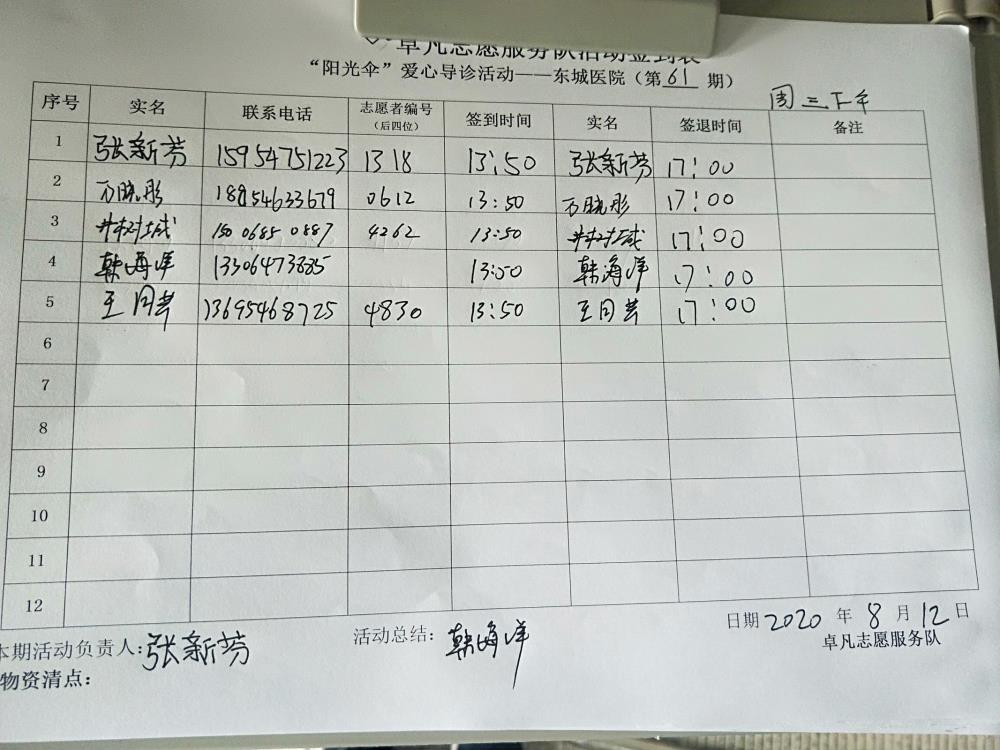 卓凡志愿服务队活动签到表
“阳光伞”爱心导诊活动——东城医院（第61期）
周三下午
序号 实名 联系电话 志愿者编号（后四位） 签到时间 实名 签退时间 备注
1 张新芳 15954751223 1318 13:50 张新芳 17:00
2 万晓彤 18854633679 0612 13:50 万晓彤 17:00
3 井树城 150 0685 0887 4262 13:50 井树城 17:00
4 韩海洋 13306473835 13:50 韩海洋 17:00
5 王同芸 13695468725 4830 13:50 王同芸 17:00
6
7
8
9
10
11
12
日期2020年8月12日
本期活动负责人:张新芳 活动总结:韩海洋 卓凡志愿服务队
物资清点: